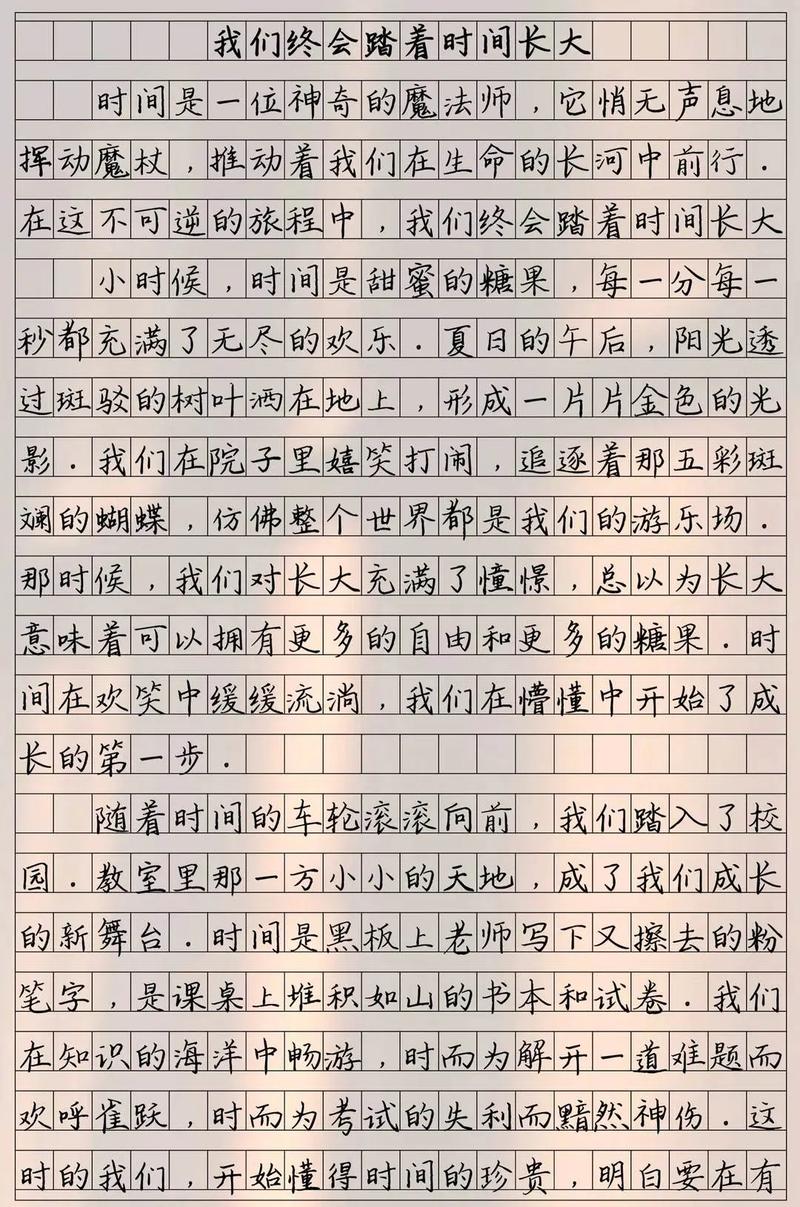 我们终会踏着时间长大
时间是一位神奇的魔法师，它悄无声息地
挥动魔杖，推动着我们在生命的长河中前行．
在这不可逆的旅程中，我们终会踏着时间长大
小时候，时间是甜蜜的糖果，每一分每一
秒都充满了无尽的欢乐．夏日的午后，阳光透
过斑驳的树叶洒在地上，形成一片片金色的光
影．我们在院子里嬉笑打闹，追逐着那五彩斑
斓的蝴蝶，仿佛整个世界都是我们的游乐场．
那时候，我们对长大充满了憧憬，总以为长大
意味着可以拥有更多的自由和更多的糖果．时
间在欢笑中缓缓流淌，我们在懵懂中开始了成
长的第一步．
随着时间的车轮滚滚向前，我们踏入了校
园．教室里那一方小小的天地，成了我们成长
的新舞台．时间是黑板上老师写下又擦去的粉
笔字，是课桌上堆积如山的书本和试卷．我们
在知识的海洋中畅游，时而为解开一道难题而
欢呼雀跃，时而为考试的失利而黯然神伤．这
时的我们，开始懂得时间的珍贵，明白要在有